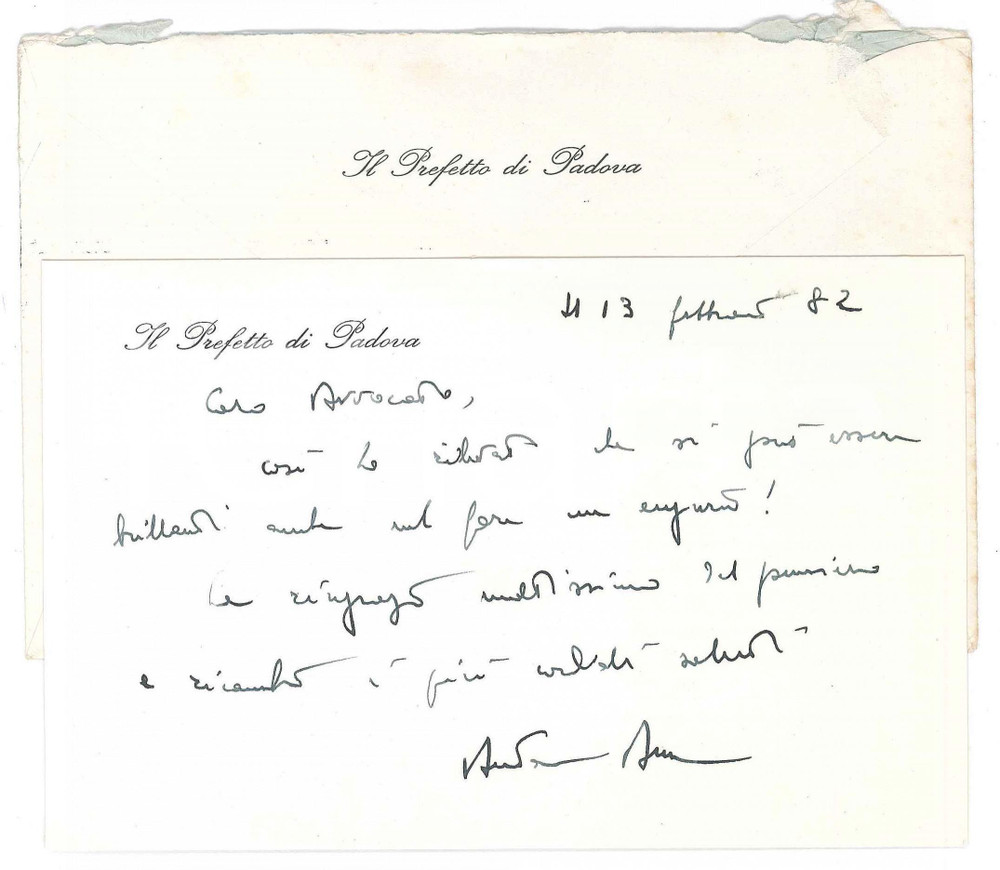 Il Prefetto di Padova
Il Prefetto di Padova
13 febbraio 82
Caro Avvocato,
così ho che si può essere
brillanti anche nel fare un augurio!
La ringrazio moltissimo del pensiero
e ricambio i più cordiali saluti